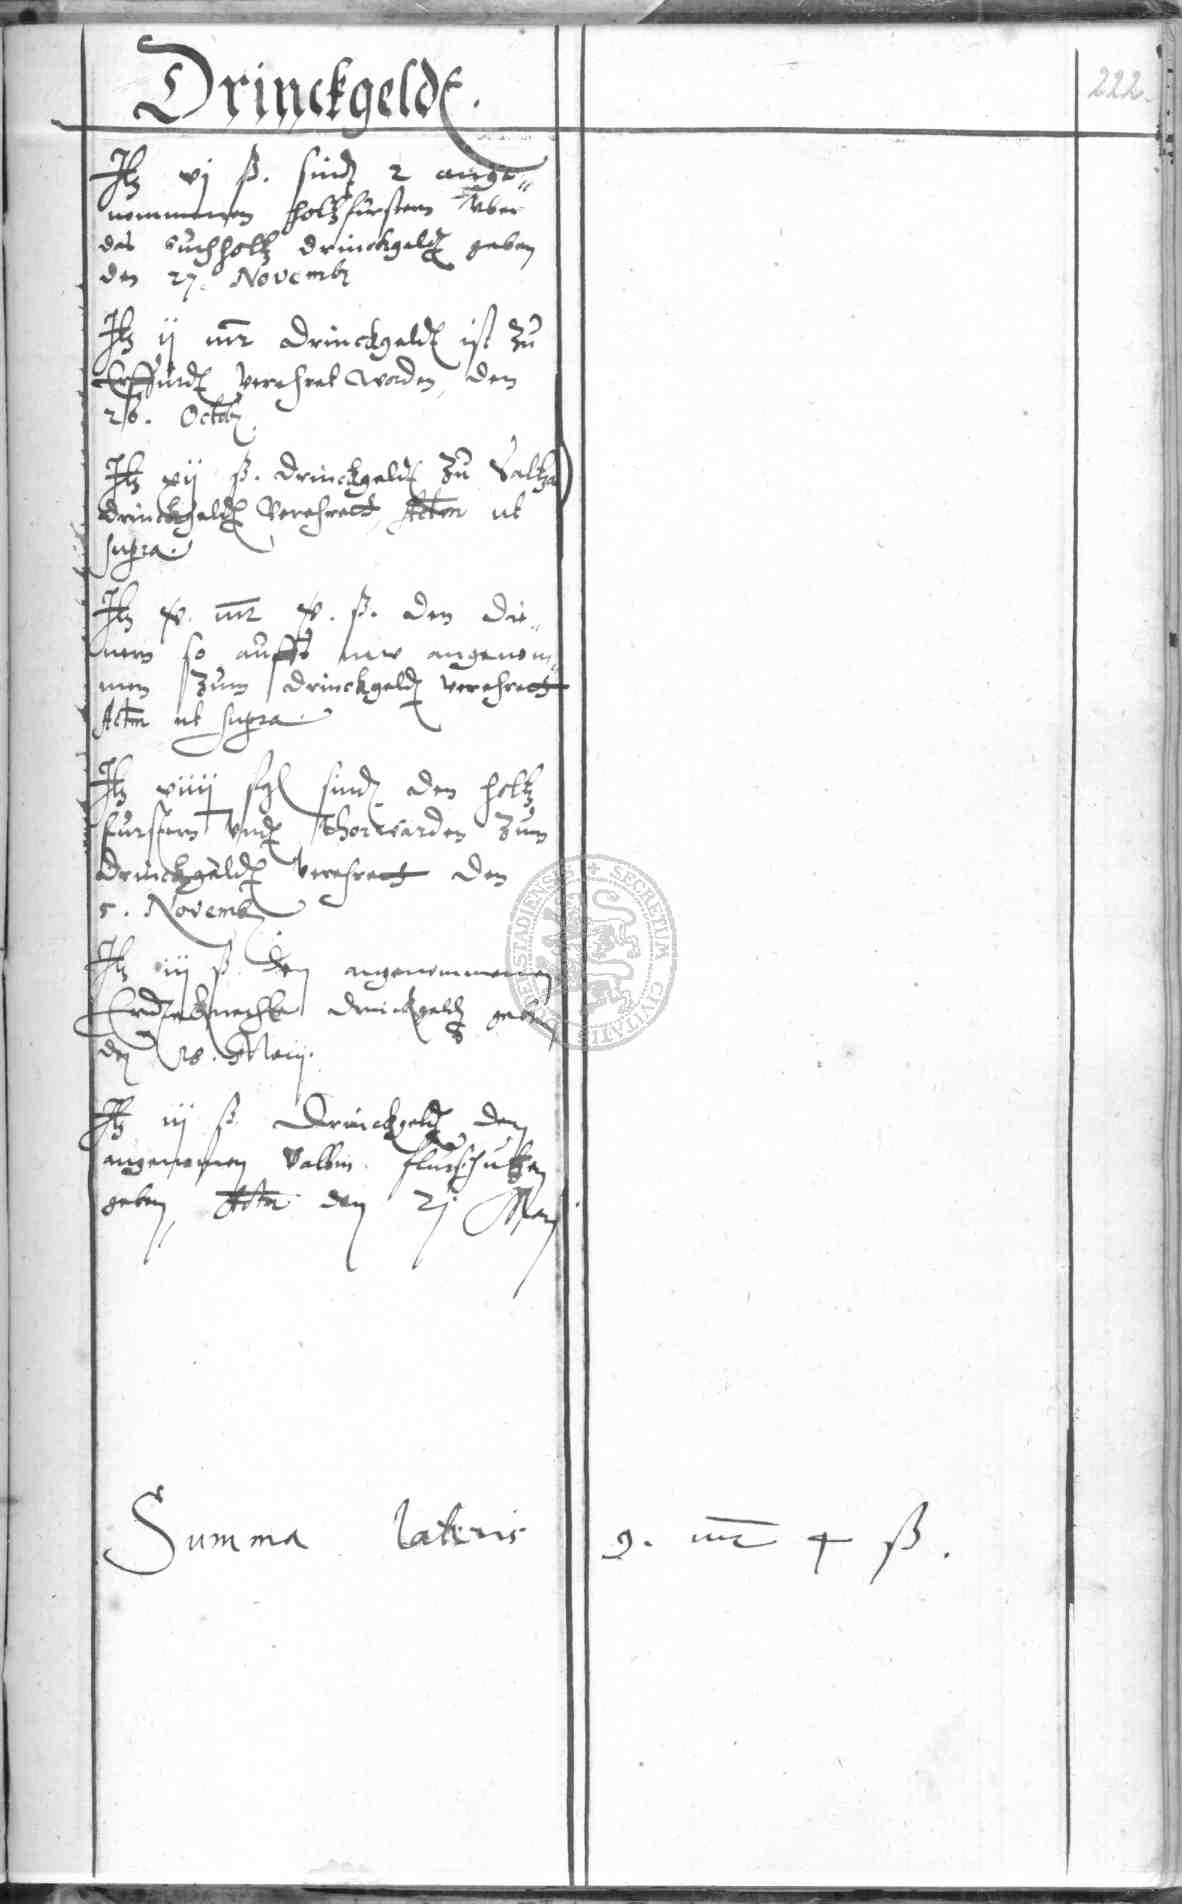 Drinckgeldt.
222.
Itz vj ß. sindt 2 ange-
nommenen holtzfürstern vber
das Buchholtz drinckgeldt geben
den 27. Novembr
Itz ij mr drinckgeldt ist zu
Erffurdt verehret worden, den
26. Octob.
Itz xij ß. drinckgeldt zu Saltza
drinckgeldt verehrett, Actm ut
supra.
Itz xv. mr xv. ß. den die-
nern so auffs new angenom-
men zum drinckgeldt verehrett
Actm ut supra.
Itz viiij sgl sindt den holtz
furstern vndt thorwarden zum
drinckgeldt verehrett den
5. Novemb.
Itz iij ß den angenommenen
knechte drinckgeldt geben
den 18. Maij.
Itz iij ß Drinckgeldt den
angenomen flurschutzen
geben, Actm den 21 May.
Summa lateris 9. mr 4 ß.
SECRETUM CIVITATIS STADIENSIS